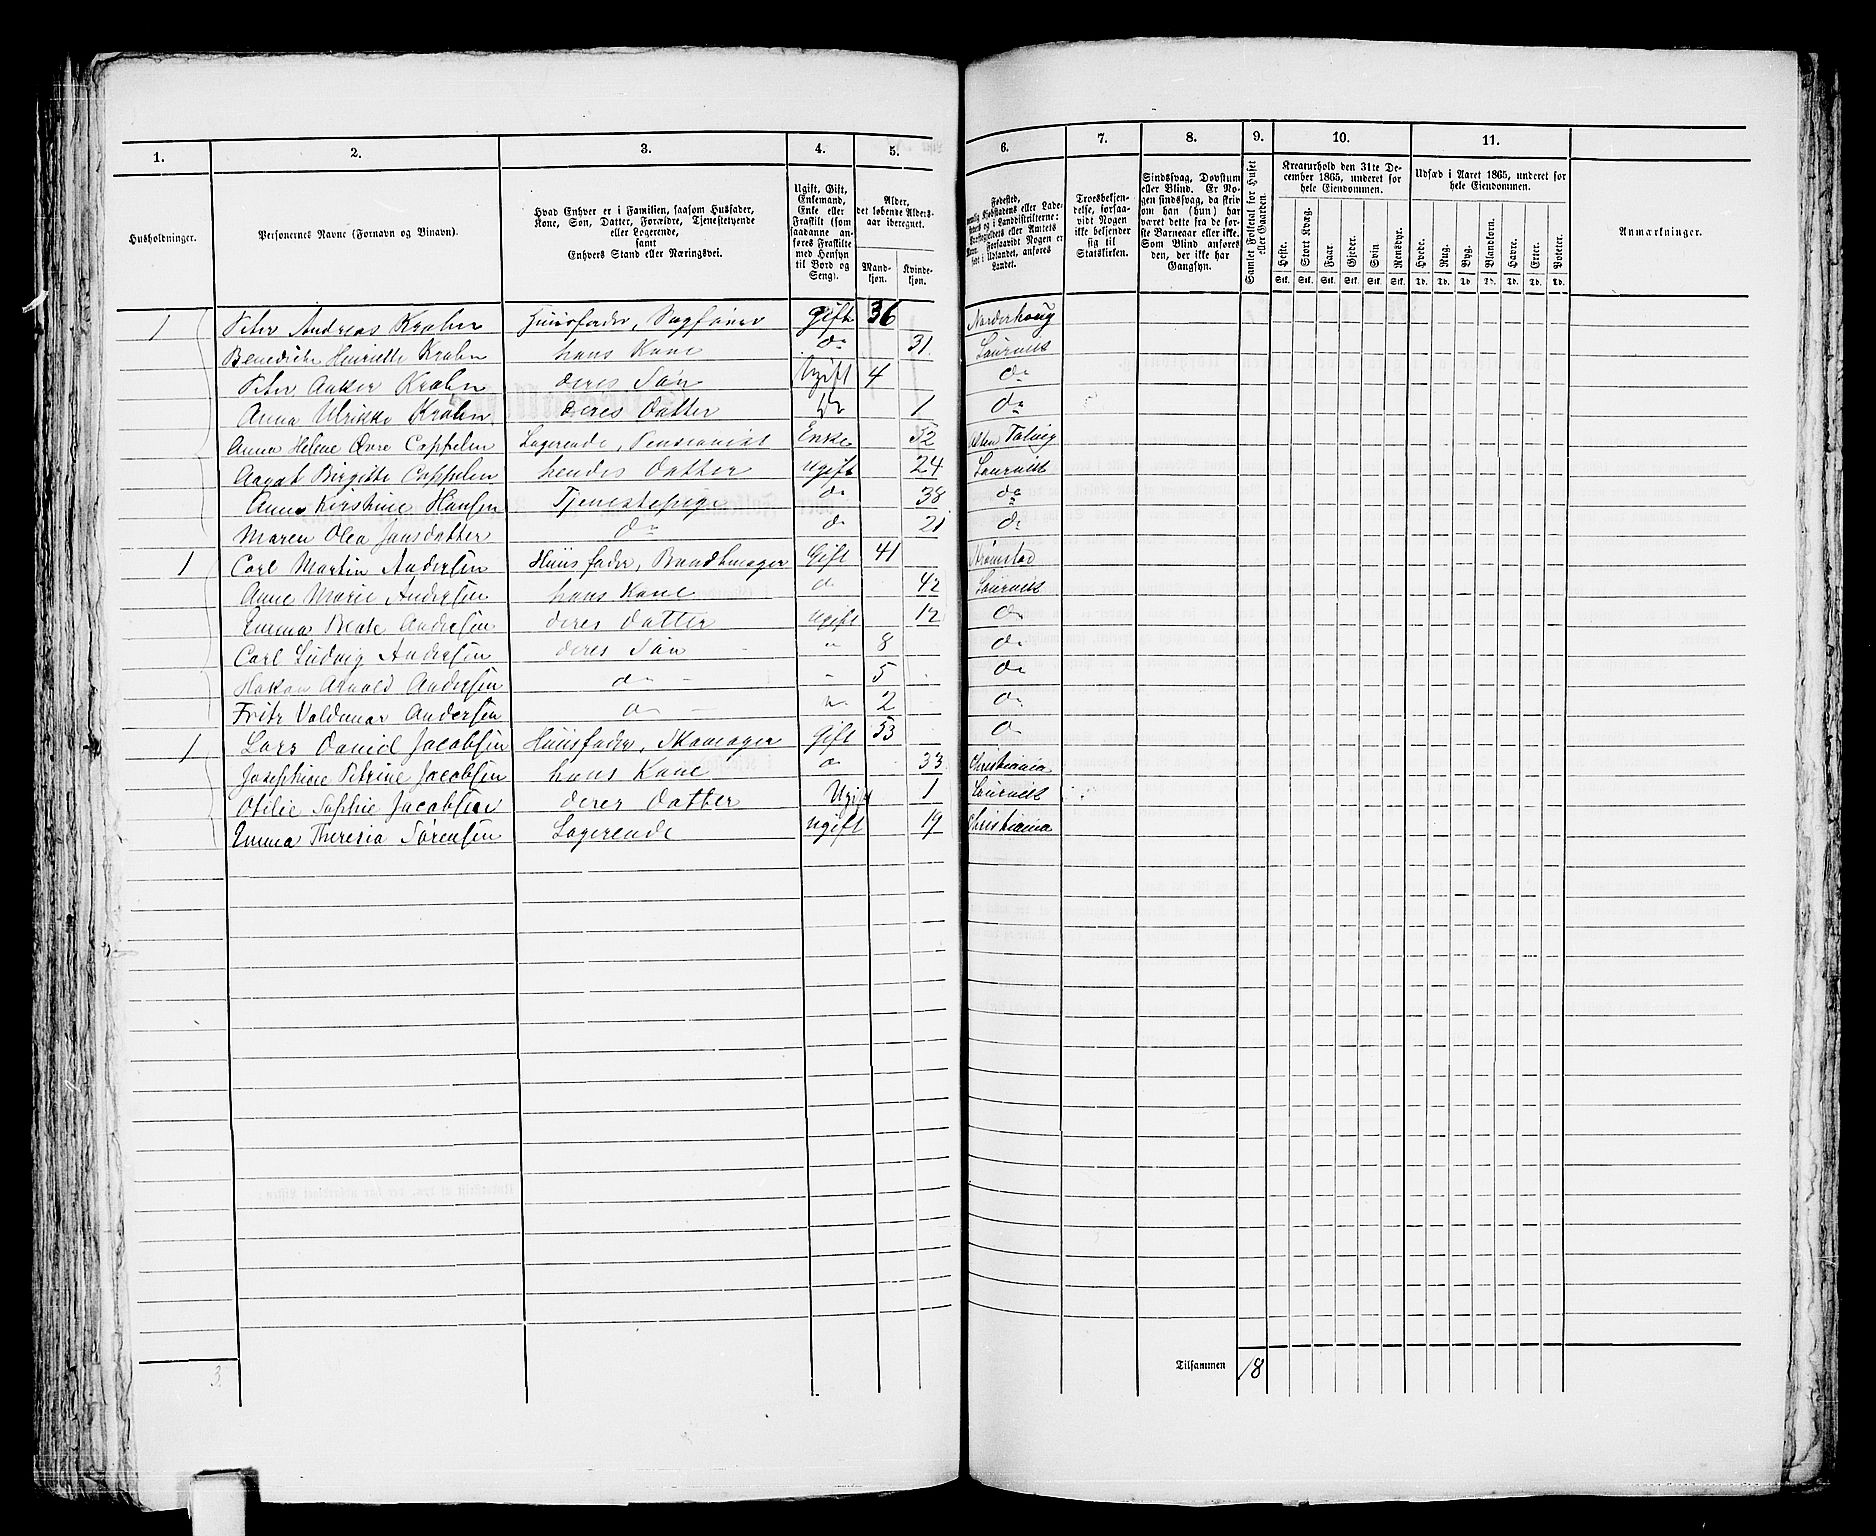 1. 2. 3. 4. 5. 6. 7. 8. 9. 10. 11.
Husholdninger.
Personernes Navne (Fornavn og Binavn).
Hvad Enhver er i Familien, saasom Husfader,
Kone, Søn, Datter, Forældre, Tjenestetyende
eller Logerende,
samt
Enhvers Stand eller Næringsvei.
Ugift, Gift,
Enkemand,
Enke eller
Fraskilt (som
saadanne an-
føres Fraskilte
med Hensyn
til Bord og
Seng).
Alder,
det løbende Alders-
aar iberegnet.
Mand-
kjøn.
Kvinde-
kjøn.
Fødested,
Forsaavidt Nogen er
født i Udlandet, anføres
Landet.
Troesbekjen-
delse, forsaa-
vidt Nogen
ikke bekjender
sig til
Statskirken.
Sindssvag, Døvstum
eller Blind. Er No-
gen sindssvag, da skriv
om han (hun) har
været dette fra de før-
ste Barneaar eller ikke.
Som Blind anføres
den, der ikke har
Gangsyn.
Samlet Folketal for Huset
eller Gaarden.
Kreaturhold den 31te De-
cember 1865, underet for
hele Eiendommen.
Heste. Stort Kvæg. Faar. Gjeder. Svin Rensdyr.
Stk. Stk. Stk. Stk. Stk. Stk.
Udsæd i Aaret 1865, underet for
hele Eiendommen.
Hvede. Rug. Byg. Blandkorn. Havre. Erter. Poteter.
Td. Td. Td Td. Td. Td. Td.
Anmærkninger.
1 Peter Andreas Krohn Huusfader, Sagfører Gift 36 Norderhoug
Benedicte Henriette Krohn hans Kone do 31 Laurvik
Peter Anker Krohn deres Søn Ugift 4 do
Anna Ulrikke Krohn deres Datter do 1 do
Anna Helene Øvre Cappelen Logerende, Pensionist Enke 52 Alten Talvig
Aagot Birgitte Cappelen hendes Datter ugift 24 Laurvik
Anne Kirstine Hansen Tjenestepige do 38 do
Maren Olea Jansdatter do do 21 do
1 Carl Martin Andersen Huusfader, Bundtmager Gift 41 Strømstad
Anne Marie Andersen hans Kone do 42 Laurvik
Emma Beate Andersen deres Datter ugift 12 do
Carl Ludvig Andersen deres Søn " 8 do
Hakon Arnold Andersen do " 5 do
Fritz Valdemar Andersen do " 2 do
1 Lars Daniel Jacobsen Huusfader, Skomager Gift 53 do
Josephine Petrine Jacobsen hans Kone do 33 Christiania
Otilie Sophie Jacobsen deres Datter Ugift 1 Laurvik
Emma Theresia Sørensen Logerende ugift 19 Christiania
3 Tilsammen 18